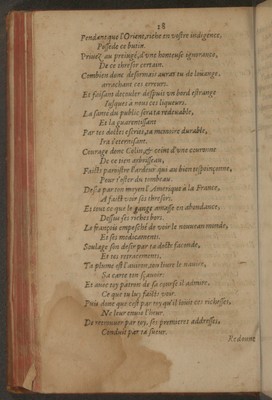 18
Pendant que l'Orient, riche en vostre indigence,
Possede ce butin.
Privez au prejugé, d'une honteuse ignorance,
De ce thresor certain.
Combien donc desormais auras tu de louange,
arrachant ces erreurs.
Et faisant decouler despuis un bord estrange
Jusques à nous ces liqueurs.
La santé du public sera ta redevable,
Et la guarentissant
Par tes doctes escrits, ta memoire durable,
Ira s'eternisant.
Courage donc Colin, & ceint d'une couronne
De ce tien arbrisseau,
Faicts paroistre l'ardeur qui au bien
Pour l'oster du tombeau.
Desia par ton moyen l'Amerique à la France,
A faict voir ses thresors,
Et tout ce que le gange amasse en abondance,
Dessus ses riches bors.
Le françois empesché de voir le nouveau monde,
Et ses medicamens.
Soulage son desir par ta docte faconde,
Et tes
Ta plume est l'aviron, ton livre le navire,
Sa carte ton sçavoir.
Et avec toy patron de sa course il admire,
Ce que tu luy faicts voir.
Puis donc que c'est par toy qu'il jouit ces richesses,
Ne leur envie l'heur.
De retrouver par toy, ses premieres addresses,
Conduit par ta faveur.
Redonne